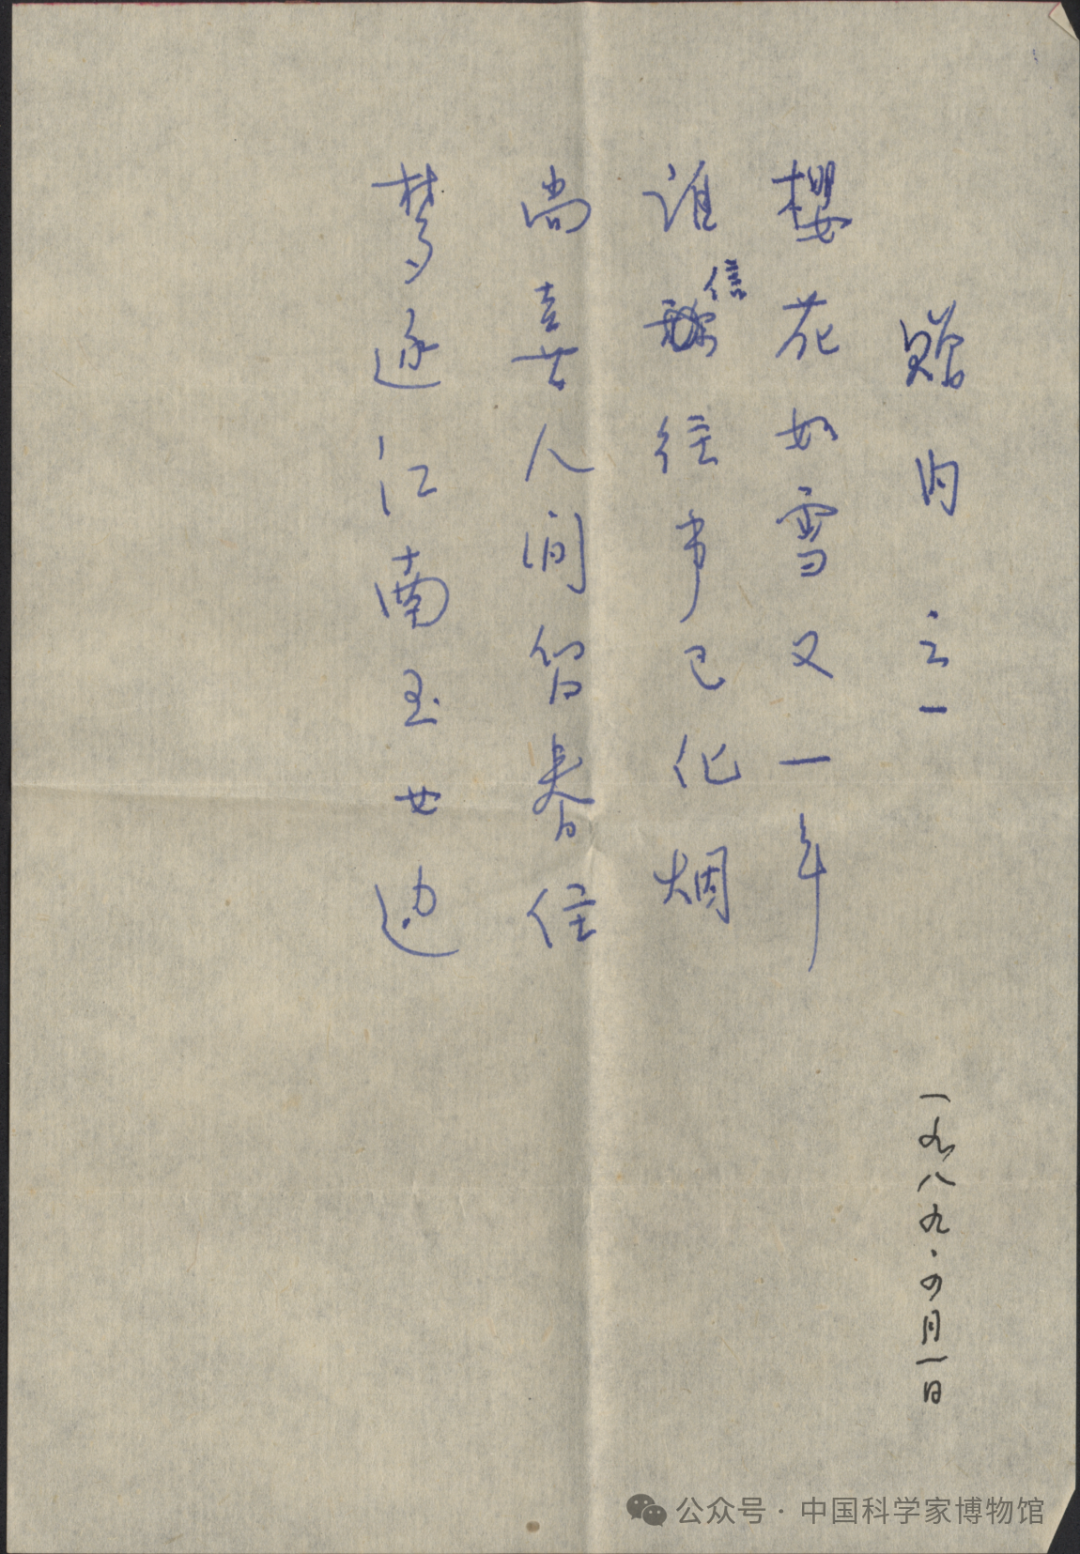 赠内之一
一九八九.四月一日
樱花如雪又一年
谁信往事已化烟
尚喜人间留春住
梦逐江南玉女边
公众号·中国科学家博物馆